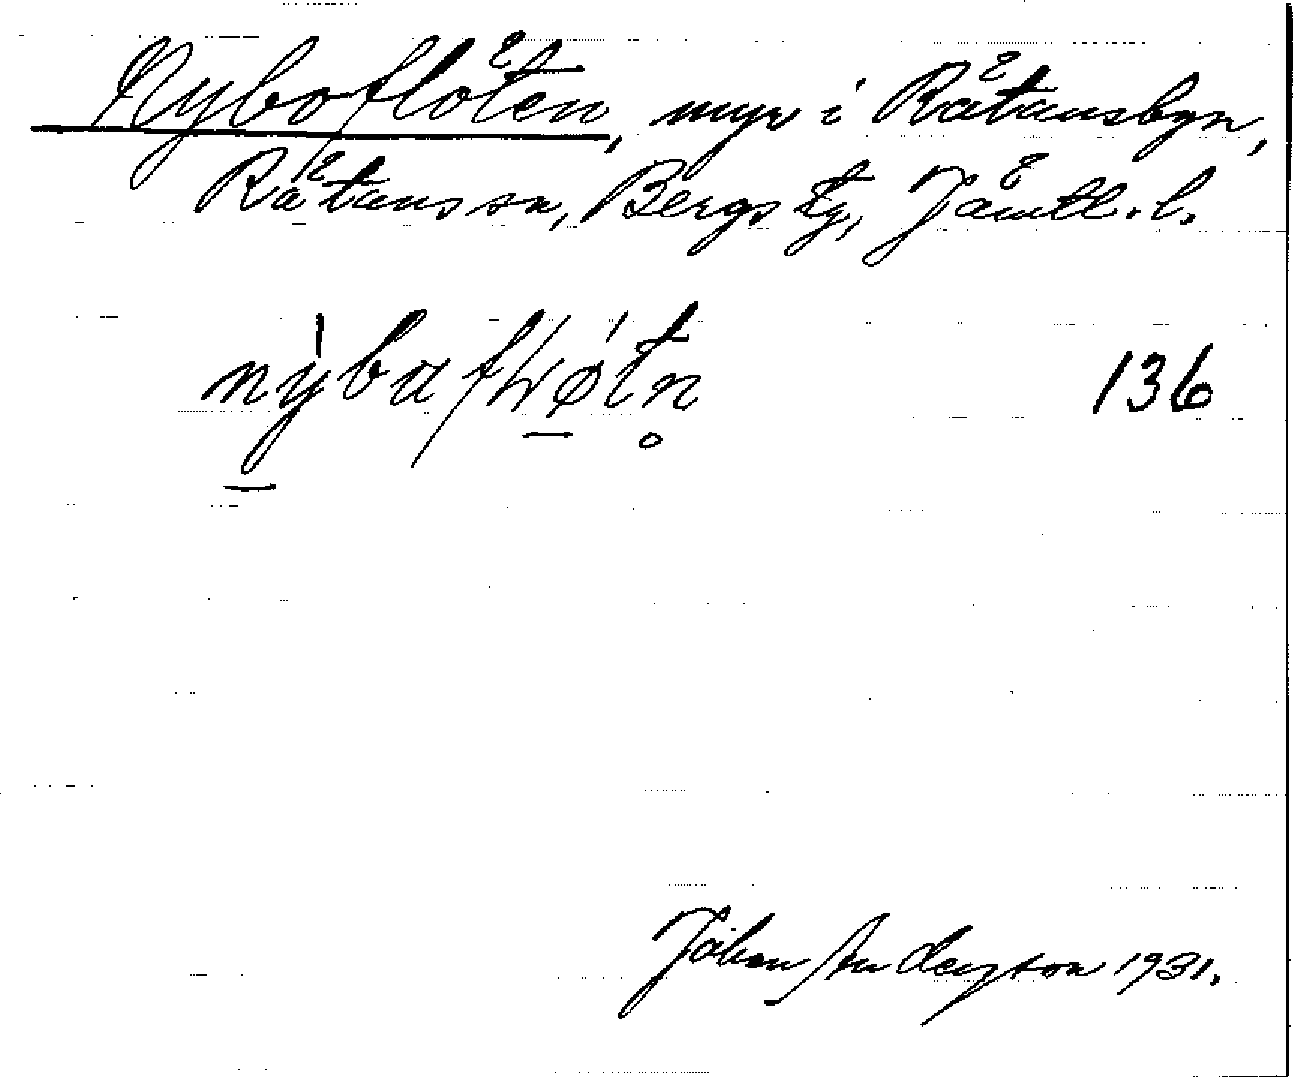 Nyboflöten, myr i Rätansbyn,
Rätans sn, Bergs tg, Jämtl. l.
136
Johan Anderson 1931.